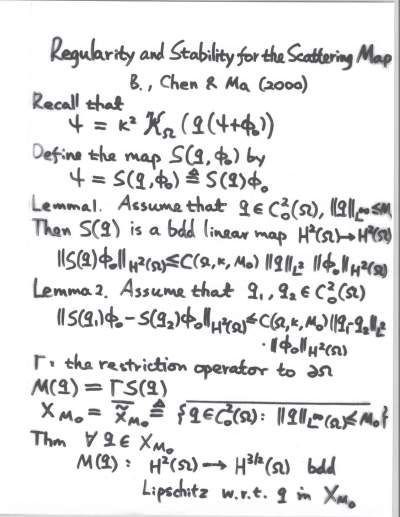 Regularity and Stability for the Scattering Map
B., Chen & Ma (2000)
Recall that
ψ = κ² 𝒦_Ω (q(ψ+ϕ₀))
Define the map S(q,ϕ₀) by
ψ = S(q,ϕ₀) ≜ S(q)ϕ₀
Lemma1. Assume that q ∈ C₀²(Ω), ‖q‖_L∞ ≤ M₀
Then S(q) is a bdd linear map H²(Ω)→H²(Ω)
‖S(q)ϕ₀‖_H²(Ω) ≤ C(Ω,κ,M₀) ‖q‖_L² ‖ϕ₀‖_H²(Ω)
Lemma2. Assume that q₁, q₂ ∈ C₀²(Ω)
‖S(q₁)ϕ₀ − S(q₂)ϕ₀‖_H²(Ω) ≤ C(Ω,κ,M₀)‖q₁−q₂‖_L²
·‖ϕ₀‖_H²(Ω)
Γ: the restriction operator to ∂Ω
M(q) = ΓS(q)
X_M₀ = X̃_M₀ ≜ {q ∈ C₀²(Ω): ‖q‖_L∞(Ω) ≤ M₀}
Thm ∀ q ∈ X_M₀
M(q): H²(Ω) → H^3/2(Ω) bdd
Lipschitz w.r.t. q in X_M₀